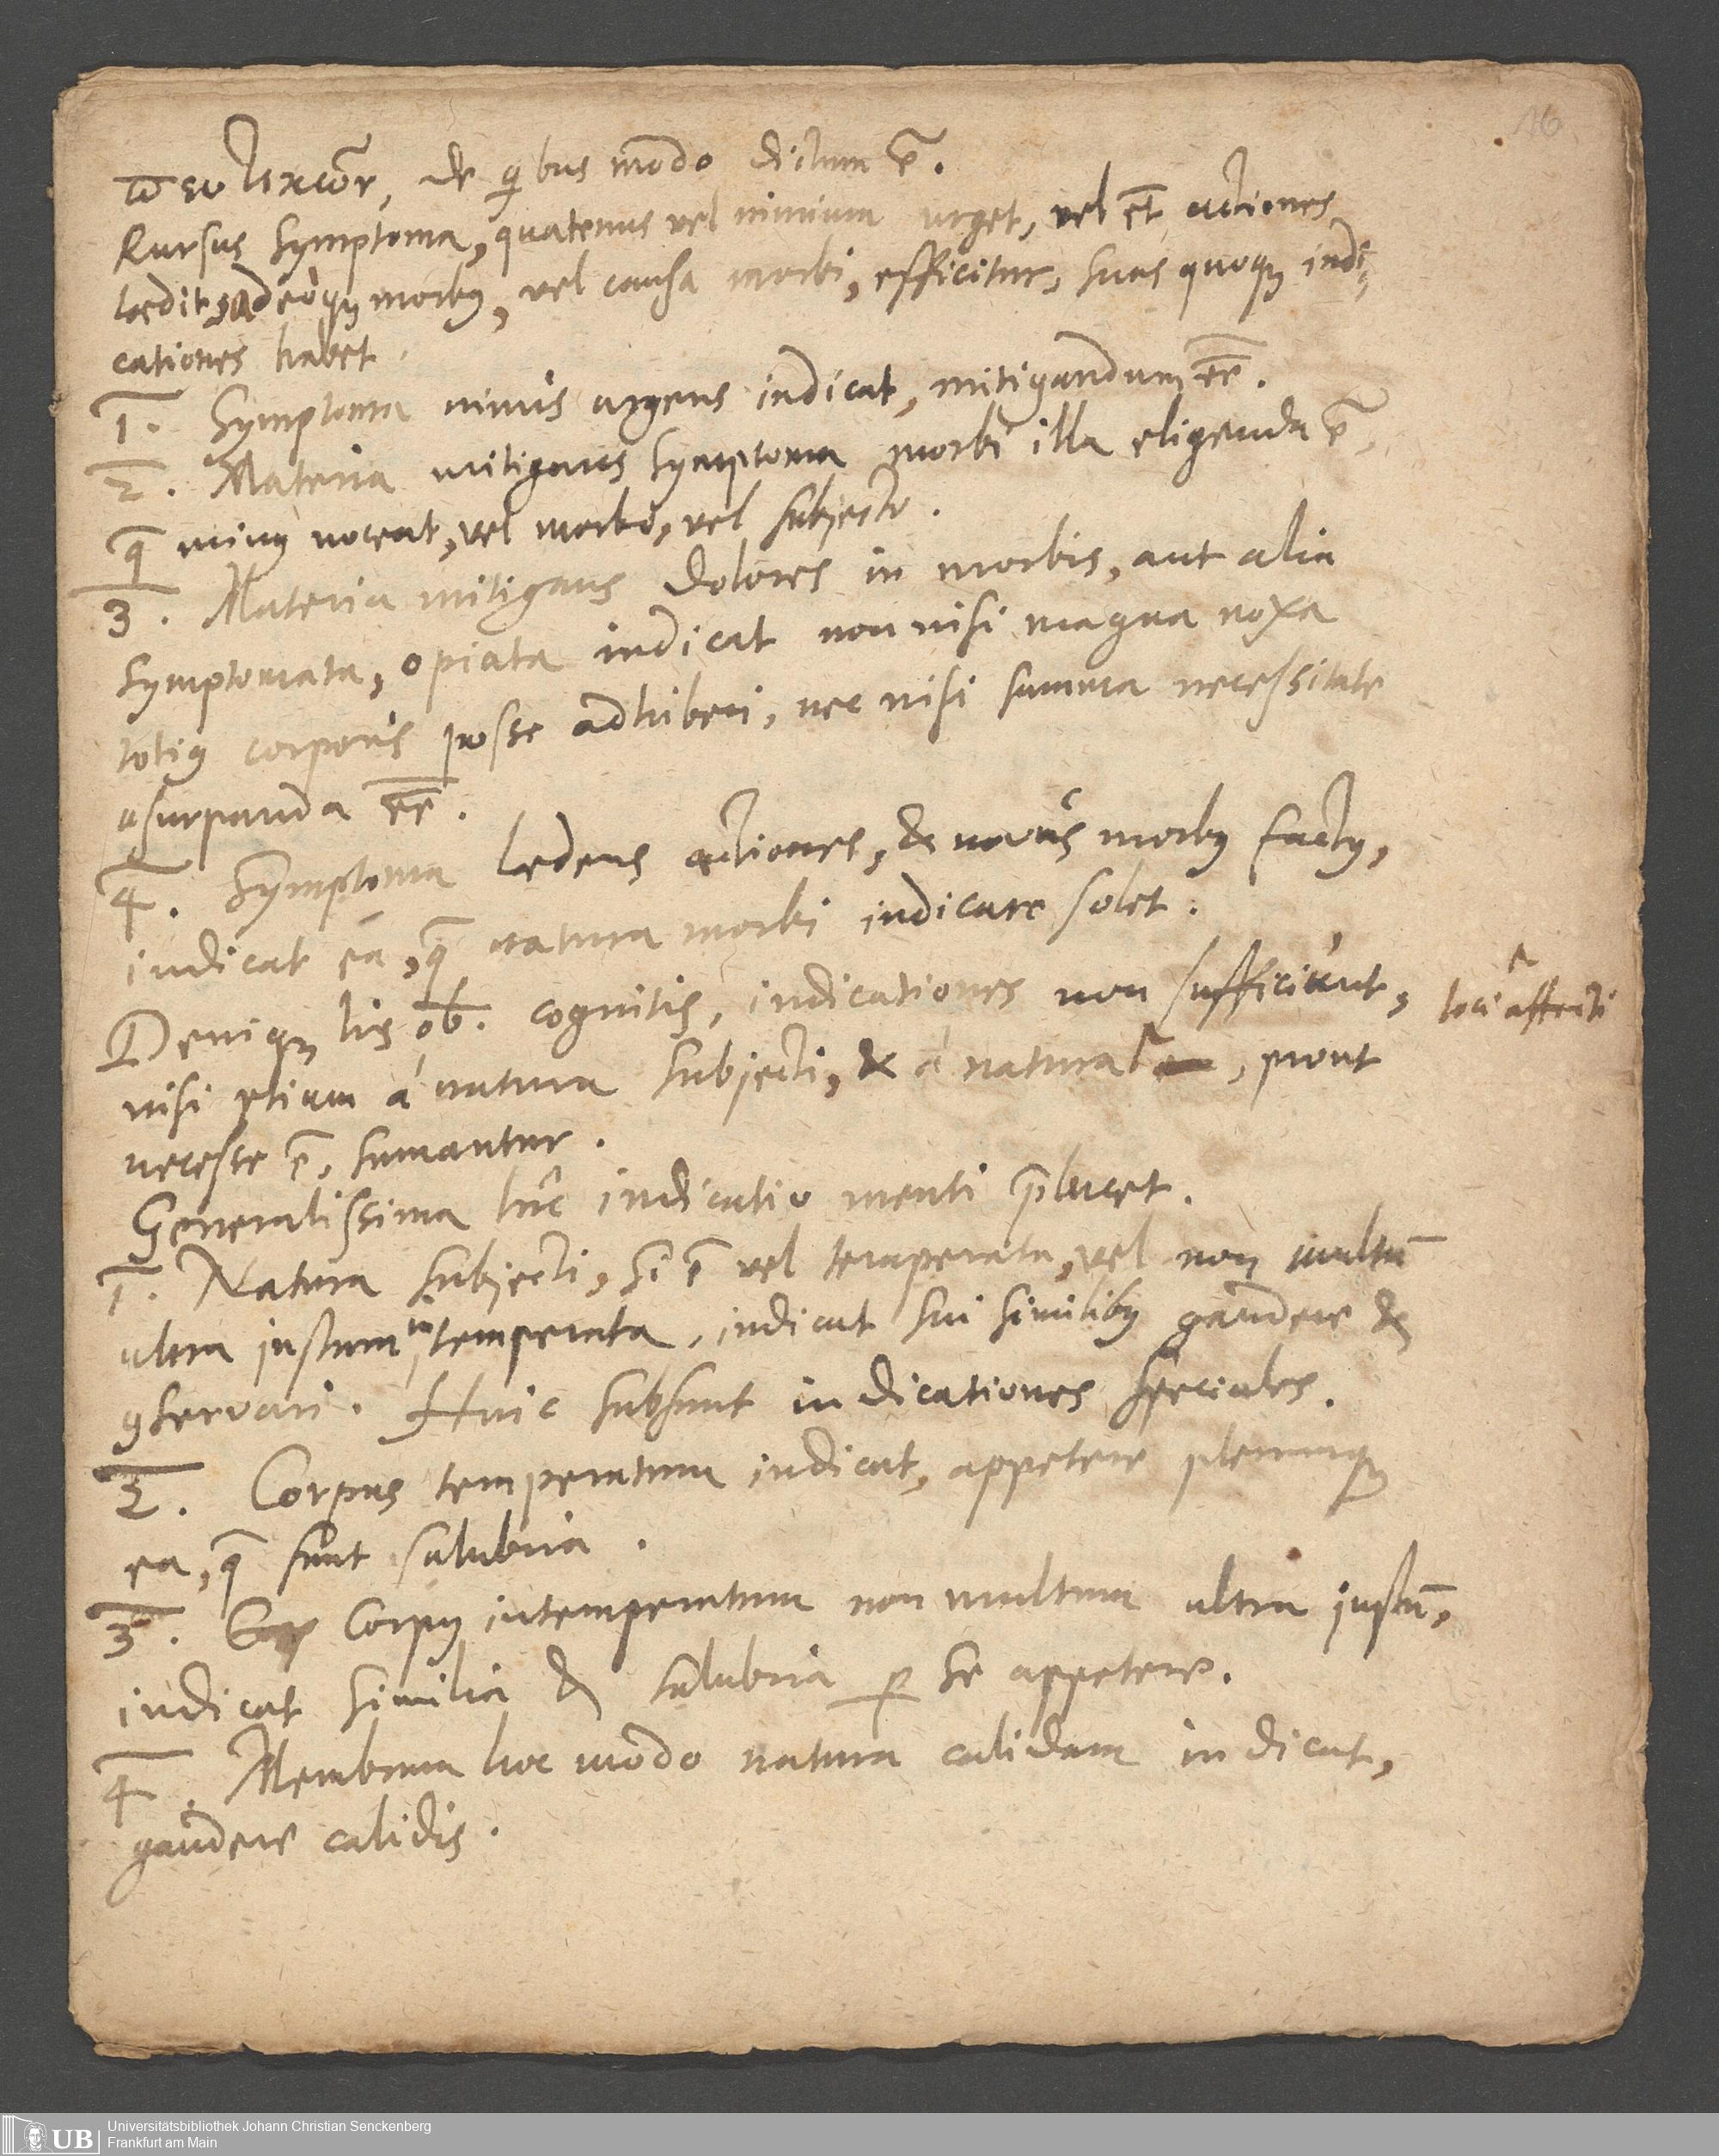 16
de qͥbus modo dictum ē.
Rursus Symptoma, quatenus vel nimium urget, vel et̄ actiones
lædit, adeoq́ꝫ morbꝰ, vel causa morbi, efficitur, suas quoqꝫ indi-
cationes habet.
1. Symptoma nimis urgens indicat, mitigandum ēē.
2. Materia mitigans symptoma morbi illa eligenda ē,
q̄ minꝰ noceat, vel morbo, vel subjecto.
3. Materia mitigans dolores in morbis, aut alia
symptomata, opiata indicat non nisi magna noxa
totiꝰ corporis posse adhiberi, nec nisi summa necessitate
usurpanda ēē.
4. Symptoma lędens actiones, & novus morbꝰ factꝰ,
indicat ea, q̄ natura morbi indicare solet.
Deniqꝫ his ob. cognitis, indicationes non sufficiunt,
nisi etiam á natura subjecti, & á natura ⌈, prout
⌈ loci affecti
necesse ē, sumantur.
Generalissima hîc indicatio menti p̄lucet.
1. Natura subjecti, si ē vel temperata, vel non multū
ultra justum intemperata, indicat sui similibꝰ gaudere &
ꝯservari. Huic subsunt indicationes speciales.
2. Corpus temperatum indicat, appetere plerumqꝫ
ea, q̄ sunt salubria.
3. Corpꝰ intemperatum non multum ultra justū,
indicat similia & salubria ꝑ se appetere.
4. Membrum hoc modo natura calidum indicat,
gaudere calidis.
UB
Universitätsbibliothek Johann Christian Senckenberg
Frankfurt am Main